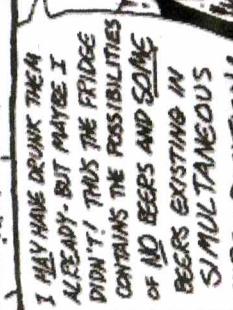 I MAY HAVE DRUNK THEM
ALREADY - BUT MAYBE I
DIDN'T! THUS THE FRIDGE
CONTAINS THE POSSIBILITIES
OF NO BEERS AND SOME
BEERS EXISTING IN
SIMULTANEOUS